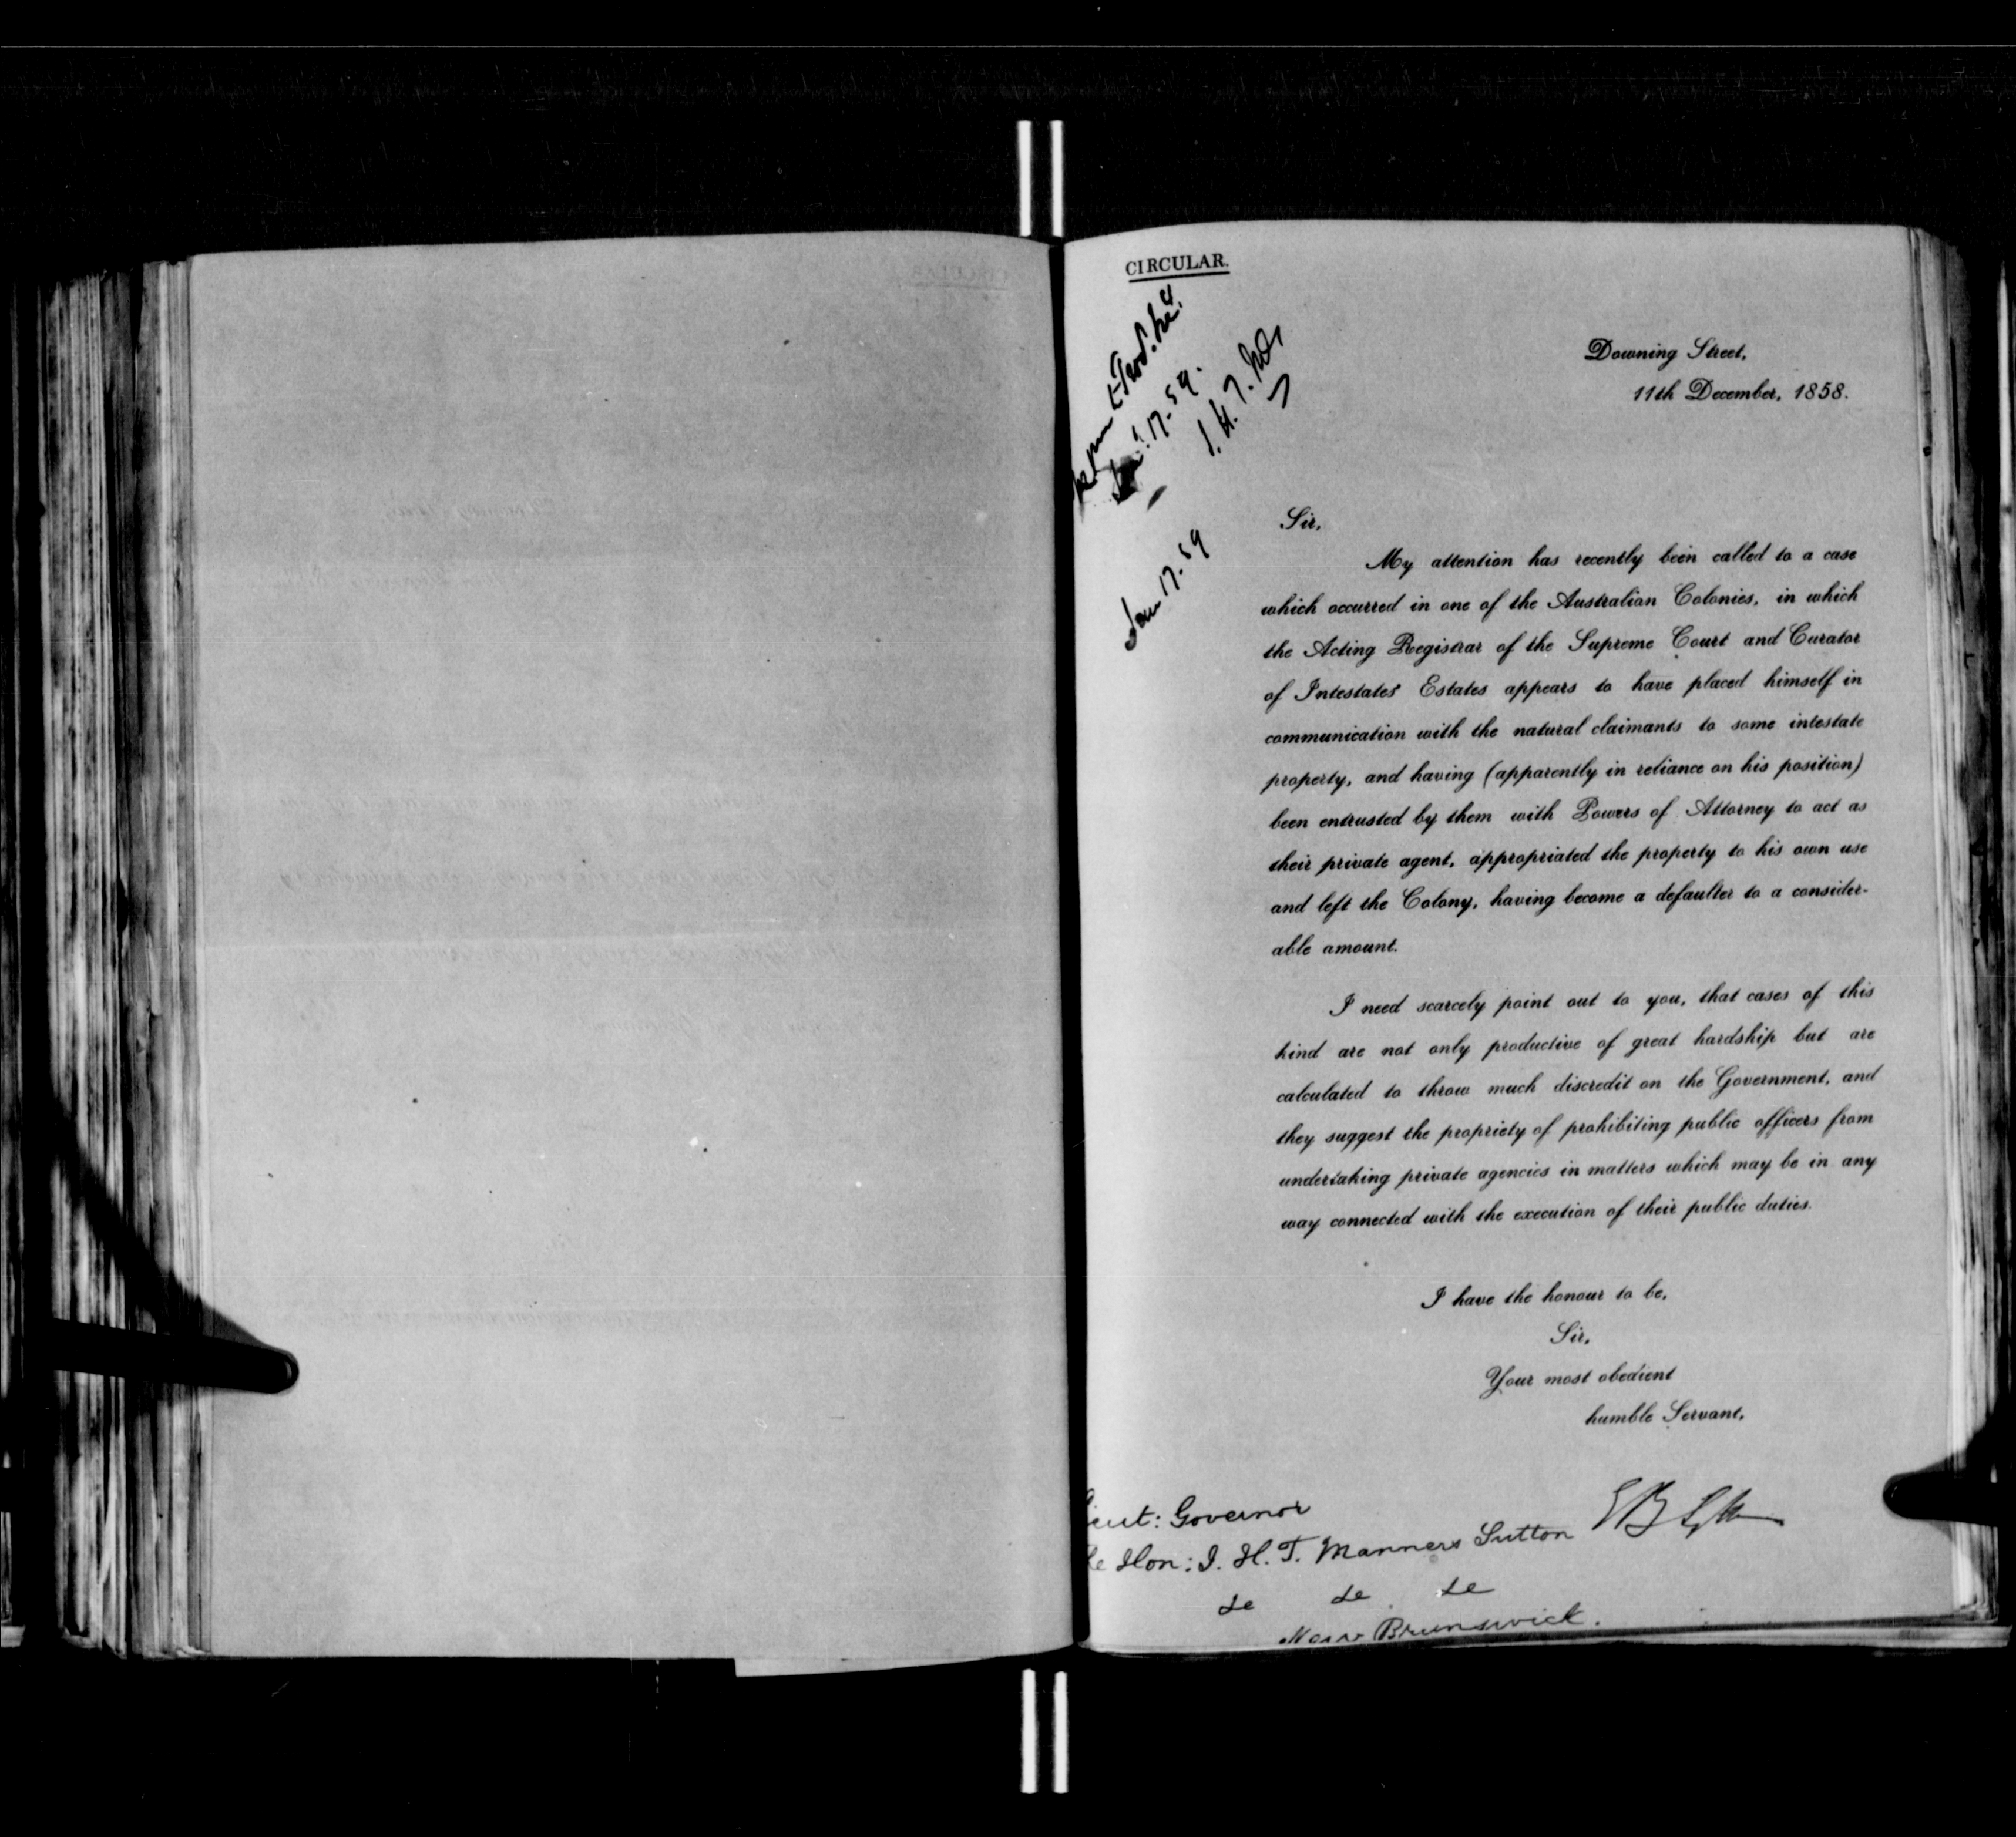 CIRCULAR.
Jan 17. 59.
J. H. T.
Jan 17. 59
Downing Street,
11th December, 1858.
Sir,
My attention has recently been called to a case
which occurred in one of the Australian Colonies, in which
the Acting Registrar of the Supreme Court and Curator
of Intestates' Estates appears to have placed himself in
communication with the natural claimants to some intestate
property, and having (apparently in reliance on his position)
been entrusted by them with Powers of Attorney to act as
their private agent, appropriated the property to his own use
and left the Colony, having become a defaulter to a consider-
able amount.
I need scarcely point out to you, that cases of this
kind are not only productive of great hardship but are
calculated to throw much discredit on the Government, and
they suggest the propriety of prohibiting public officers from
undertaking private agencies in matters which may be in any
way connected with the execution of their public duties.
I have the honour to be,
Sir,
Your most obedient
humble Servant,
EB Lytton
ieut: Governor
e Hon: J. H. T. Manners Sutton
&c &c &c
New Brunswick.